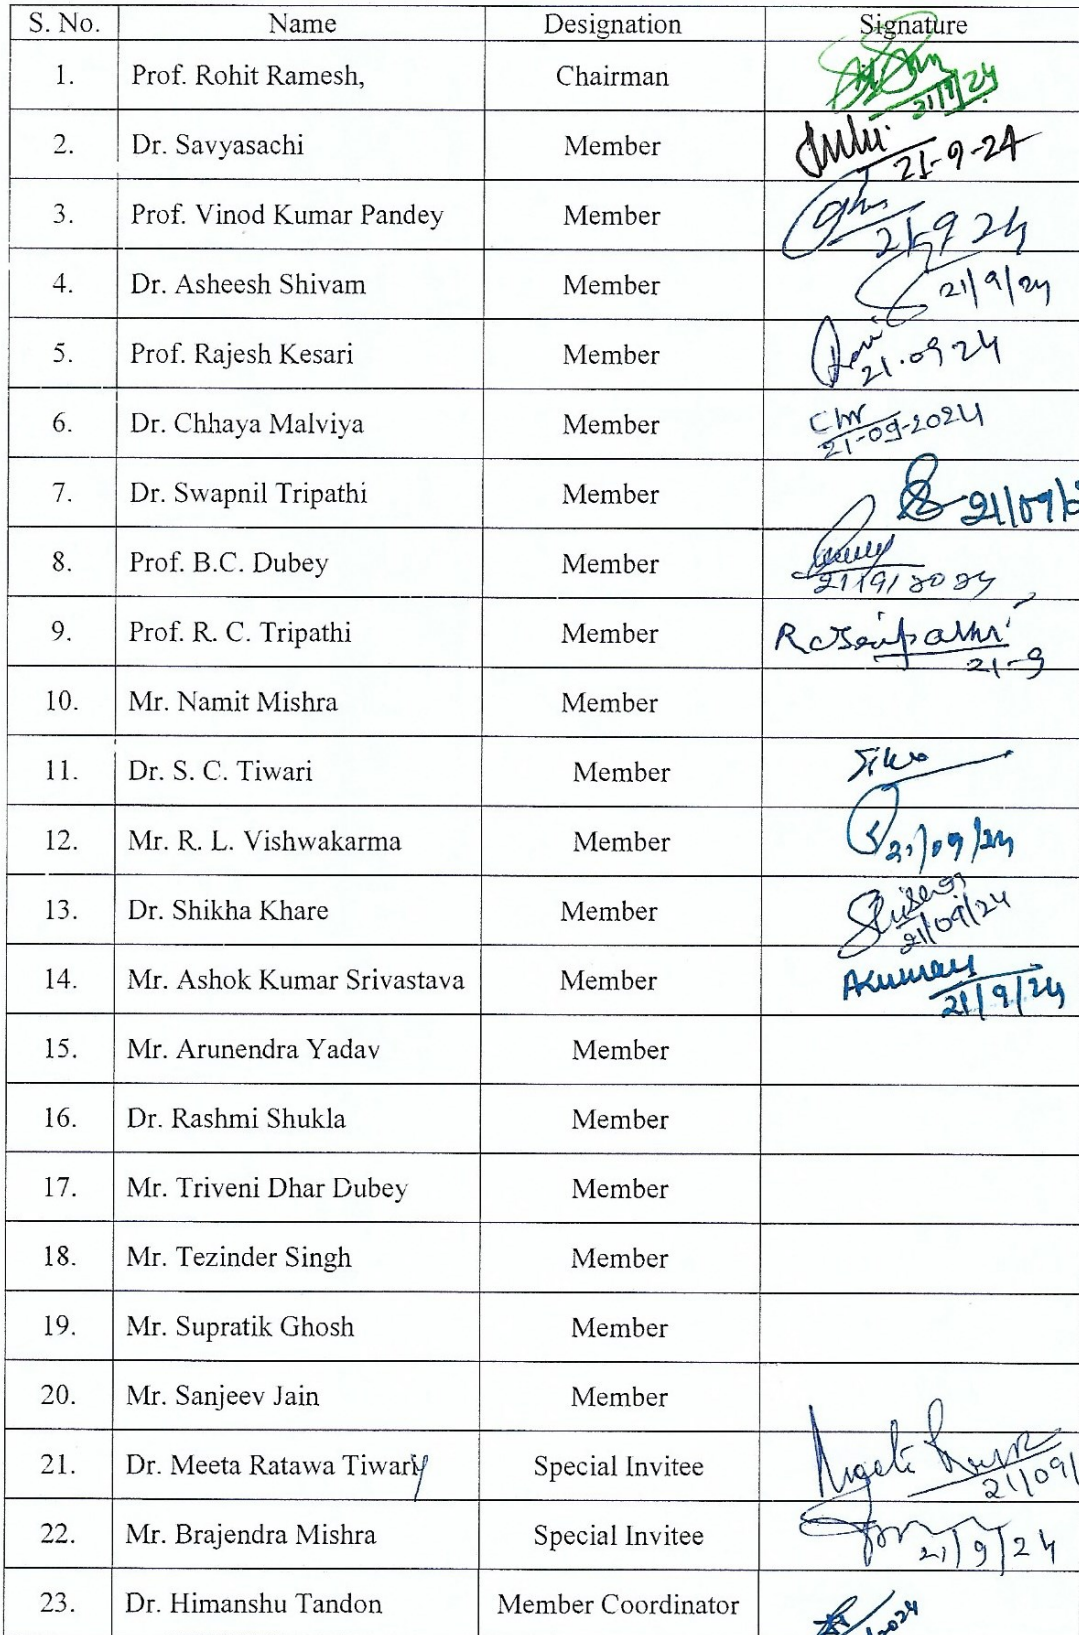 S. No. Name Designation Signature
1. Prof. Rohit Ramesh, Chairman 21/9/24
2. Dr. Savyasachi Member 21-9-24
3. Prof. Vinod Kumar Pandey Member 21-9 24
4. Dr. Asheesh Shivam Member 21/9/24
5. Prof. Rajesh Kesari Member 21.09 24
6. Dr. Chhaya Malviya Member 21-09-2024
7. Dr. Swapnil Tripathi Member 21/09/
8. Prof. B.C. Dubey Member 21/9/2024
9. Prof. R. C. Tripathi Member RcTripathi 21-9
10. Mr. Namit Mishra Member
11. Dr. S. C. Tiwari Member
12. Mr. R. L. Vishwakarma Member 21/09/24
13. Dr. Shikha Khare Member 21/09/24
14. Mr. Ashok Kumar Srivastava Member AKumar 21/9/24
15. Mr. Arunendra Yadav Member
16. Dr. Rashmi Shukla Member
17. Mr. Triveni Dhar Dubey Member
18. Mr. Tezinder Singh Member
19. Mr. Supratik Ghosh Member
20. Mr. Sanjeev Jain Member
21. Dr. Meeta Ratawa Tiwary Special Invitee 21/09/
22. Mr. Brajendra Mishra Special Invitee 21/9/24
23. Dr. Himanshu Tandon Member Coordinator